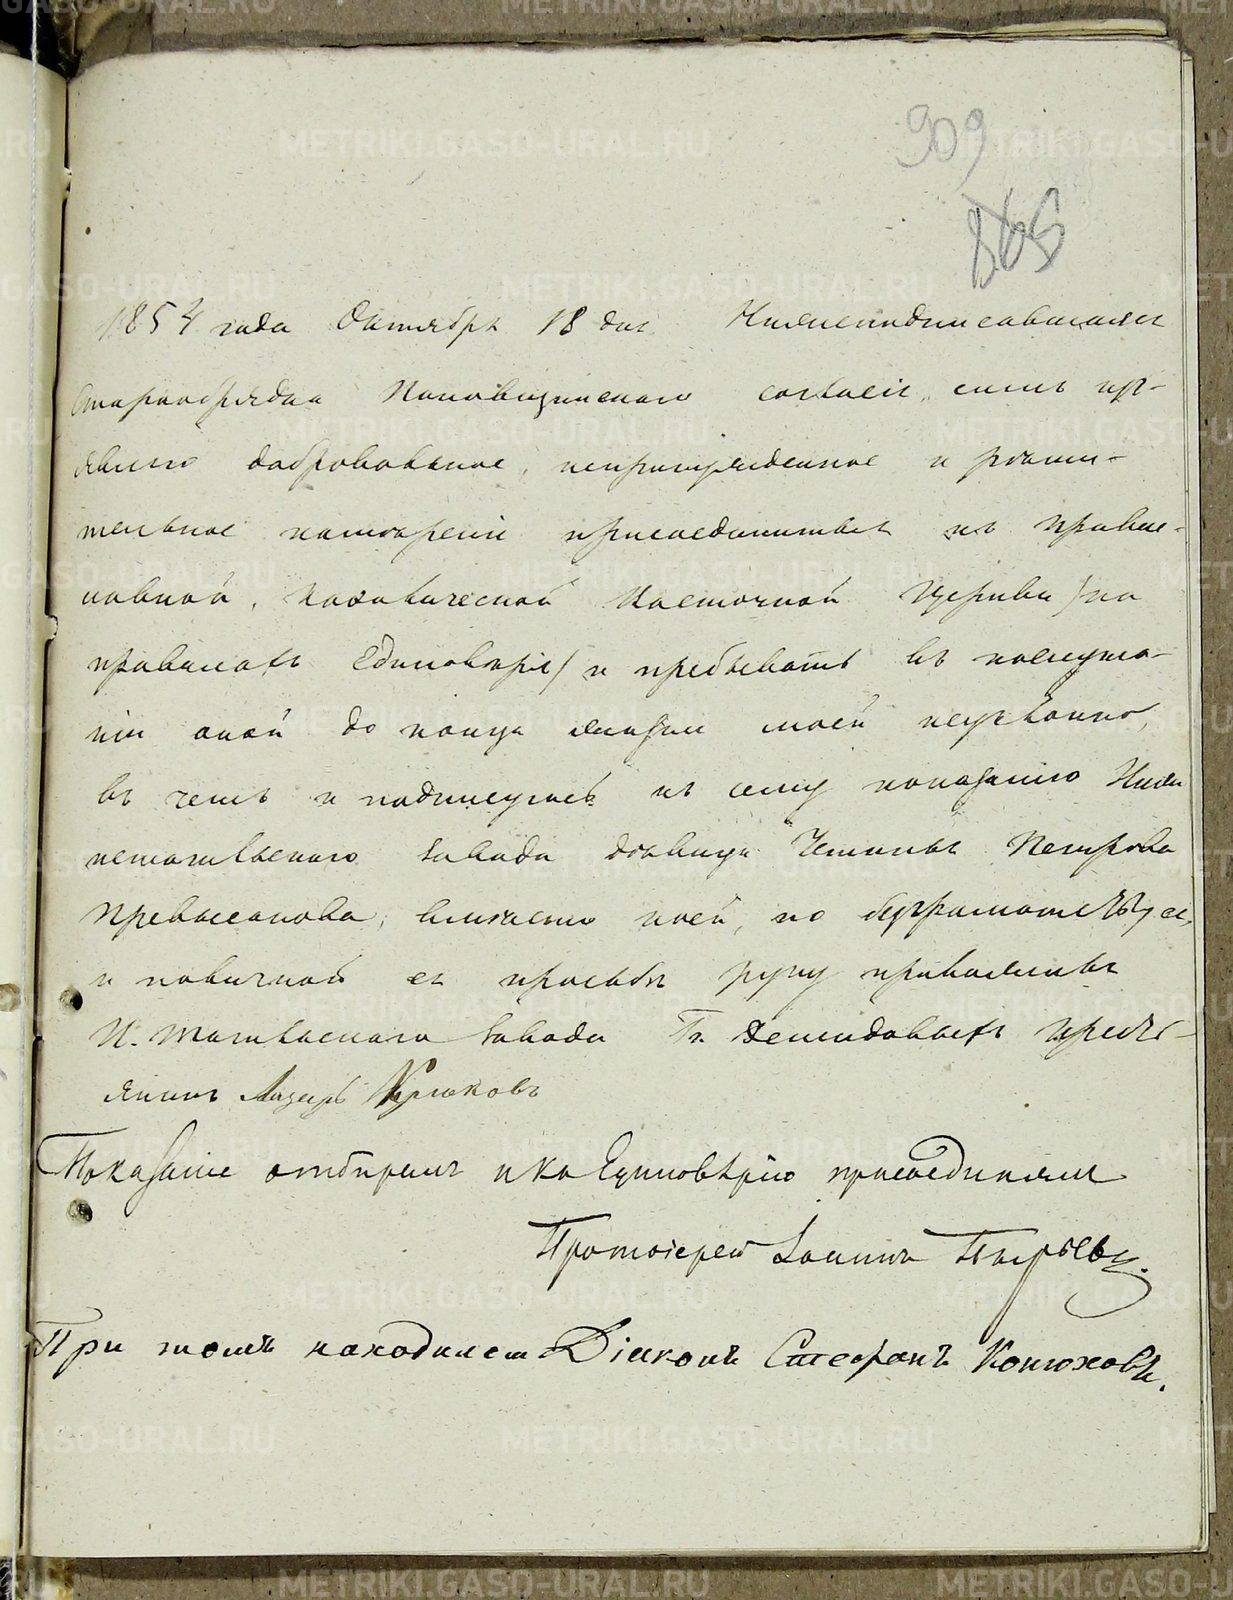 909
865
1854 года Октября 18 дня Нижеподписавшаяся
Старообрядка Поповщинскаго согласія, симъ изъ-
являю добровольное, непринужденное и рѣши-
тельное намѣреніе присоединиться къ право-
славной, каѳолической Восточной Церкви /на
правилахъ Единовѣрія/ и пребывать въ послуша-
ніи оной до конца жизни моей неуклонно,
въ чемъ и подписуюсь къ сему показанію Ниж
нетагильскаго завода дѣвица Петрова
вмѣсто коей, по безграмотству ея,
и по личной ея просьбѣ руку приложилъ
Н. Тагильскаго завода Гг. Демидовыхъ кресть-
янинъ Лазарь Крюковъ
Показаніе отбиралъ и къ Единовѣрію присоединялъ
Протоіерей Іоаннъ Пырьевъ.
При томъ находился Діаконъ Стефанъ Конюховъ.
METRIKI.GASO-URAL.RU